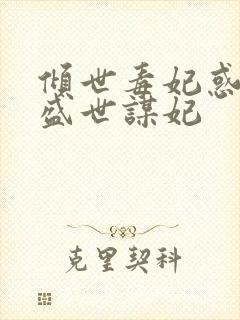 傾世毒妃惑
盛世謀妃
克里契科